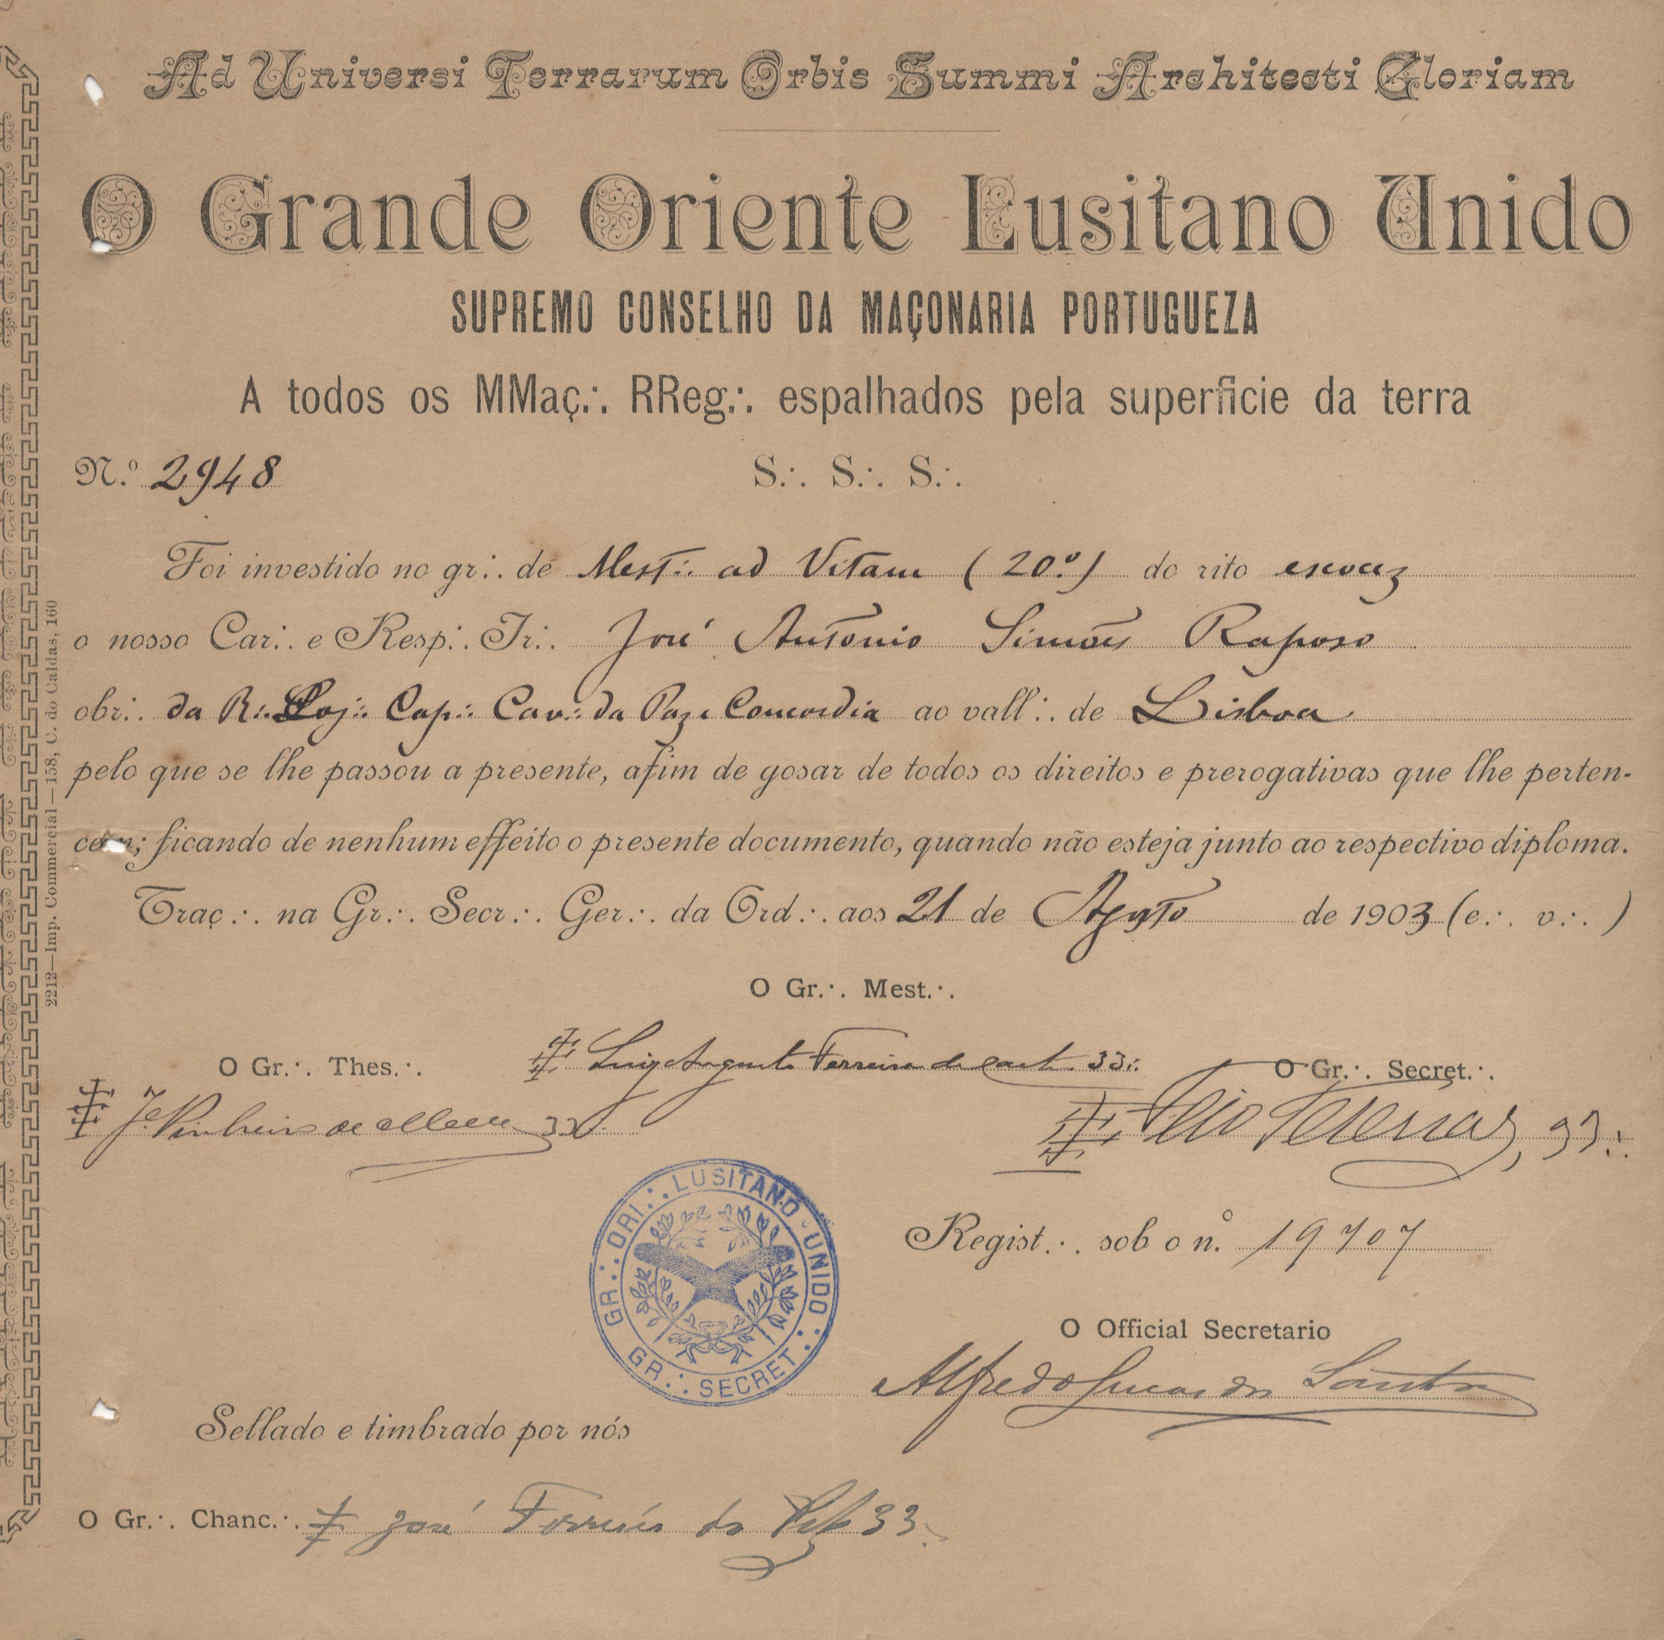 Ad Universi Terrarum Orbis Summi Architecti Gloriam
O Grande Oriente Lusitano Unido
SUPREMO CONSELHO DA MAÇONARIA PORTUGUEZA
A todos os MMaç.·. RReg.·. espalhados pela superficie da terra
N.º 2948
S.·. S.·. S.·.
Foi investido no gr.·. de Mest.·. ad Vitam (20.º) do rito escocez
o nosso Car.·. e Resp.·. Ir.·. José Antonio Simões Raposo
obr.·. da R.·. Loj.·. Cap.·. Cav.·. da Paz e Concordia ao vall.·. de Lisboa
pelo que se lhe passou a presente, afim de gosar de todos os direitos e prerogativas que lhe perten-
cem; ficando de nenhum effeito o presente documento, quando não esteja junto ao respectivo diploma.
Traç.·. na Gr.·. Secr.·. Ger.·. da Ord.·. aos 21 de Agosto de 1903 (e.·. v.·.)
O Gr.·. Mest.·.
Luiz Augusto Ferreira de Castro 33.·.
O Gr.·. Thes.·.
33
O Gr.·. Secret.·.
Feio Terenas, 33.·.
GR.·. ORI.·. LUSITANO UNIDO
GR.·. SECRET.·.
Regist.·. sob o n.º 19707
O Official Secretario
Alfredo Lucas dos Santos
Sellado e timbrado por nós
O Gr.·. Chanc.·. José 33
2212—Imp. Commercial—158, C. do Caldas, 160